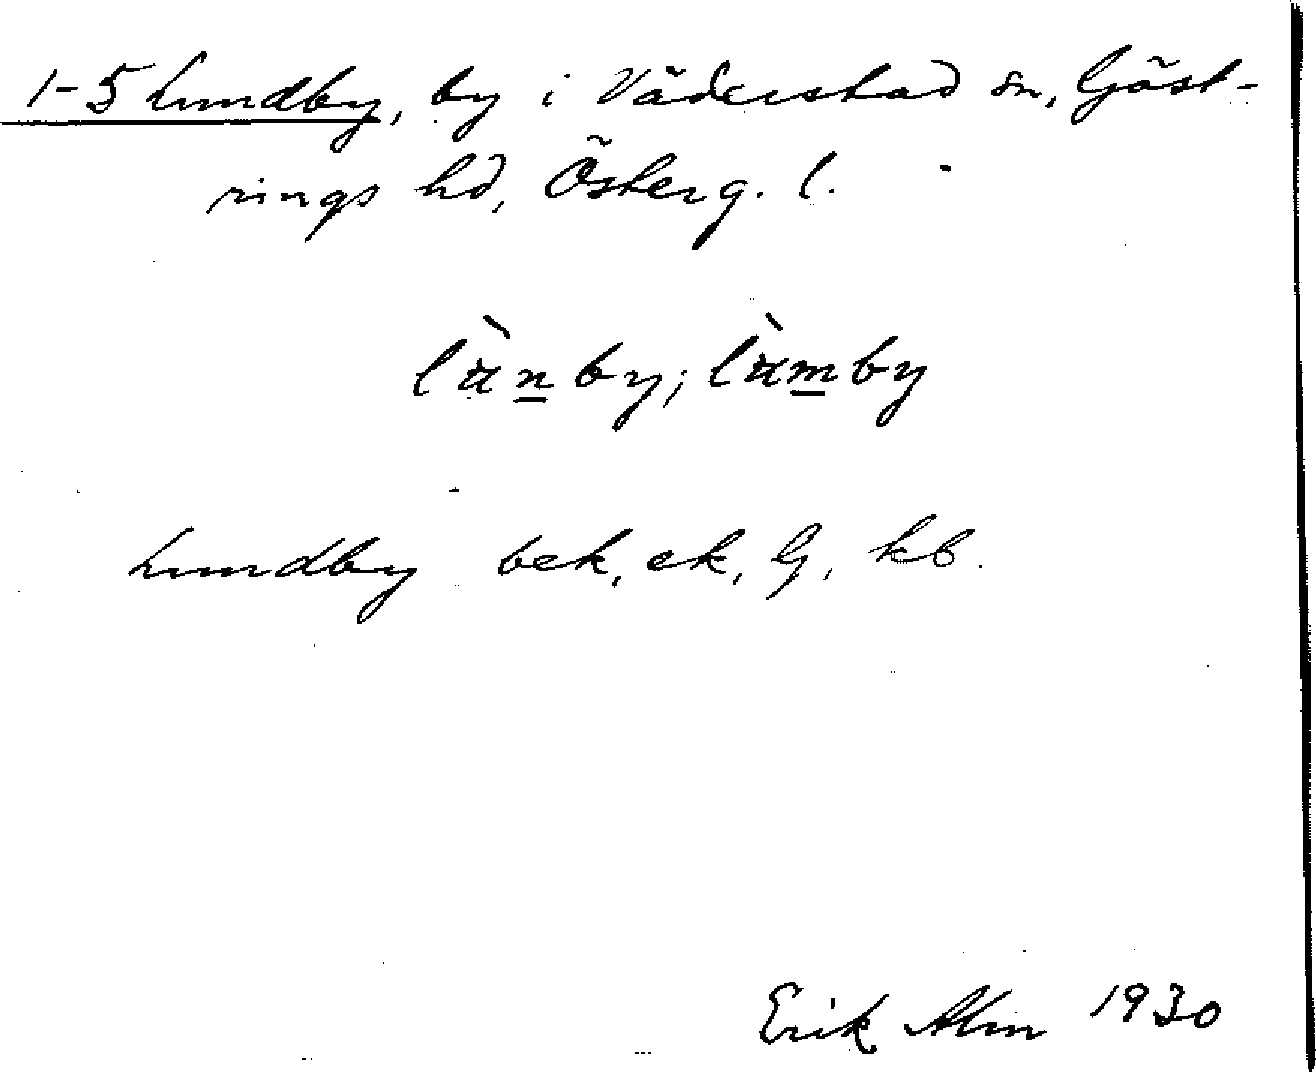 1-5 Lundby, by i Väderstad sn, Göst-
rings hd, Österg. l.
lùnby; lùmby
Lundby bek, ek, G, kb.
Erik Alm 1930